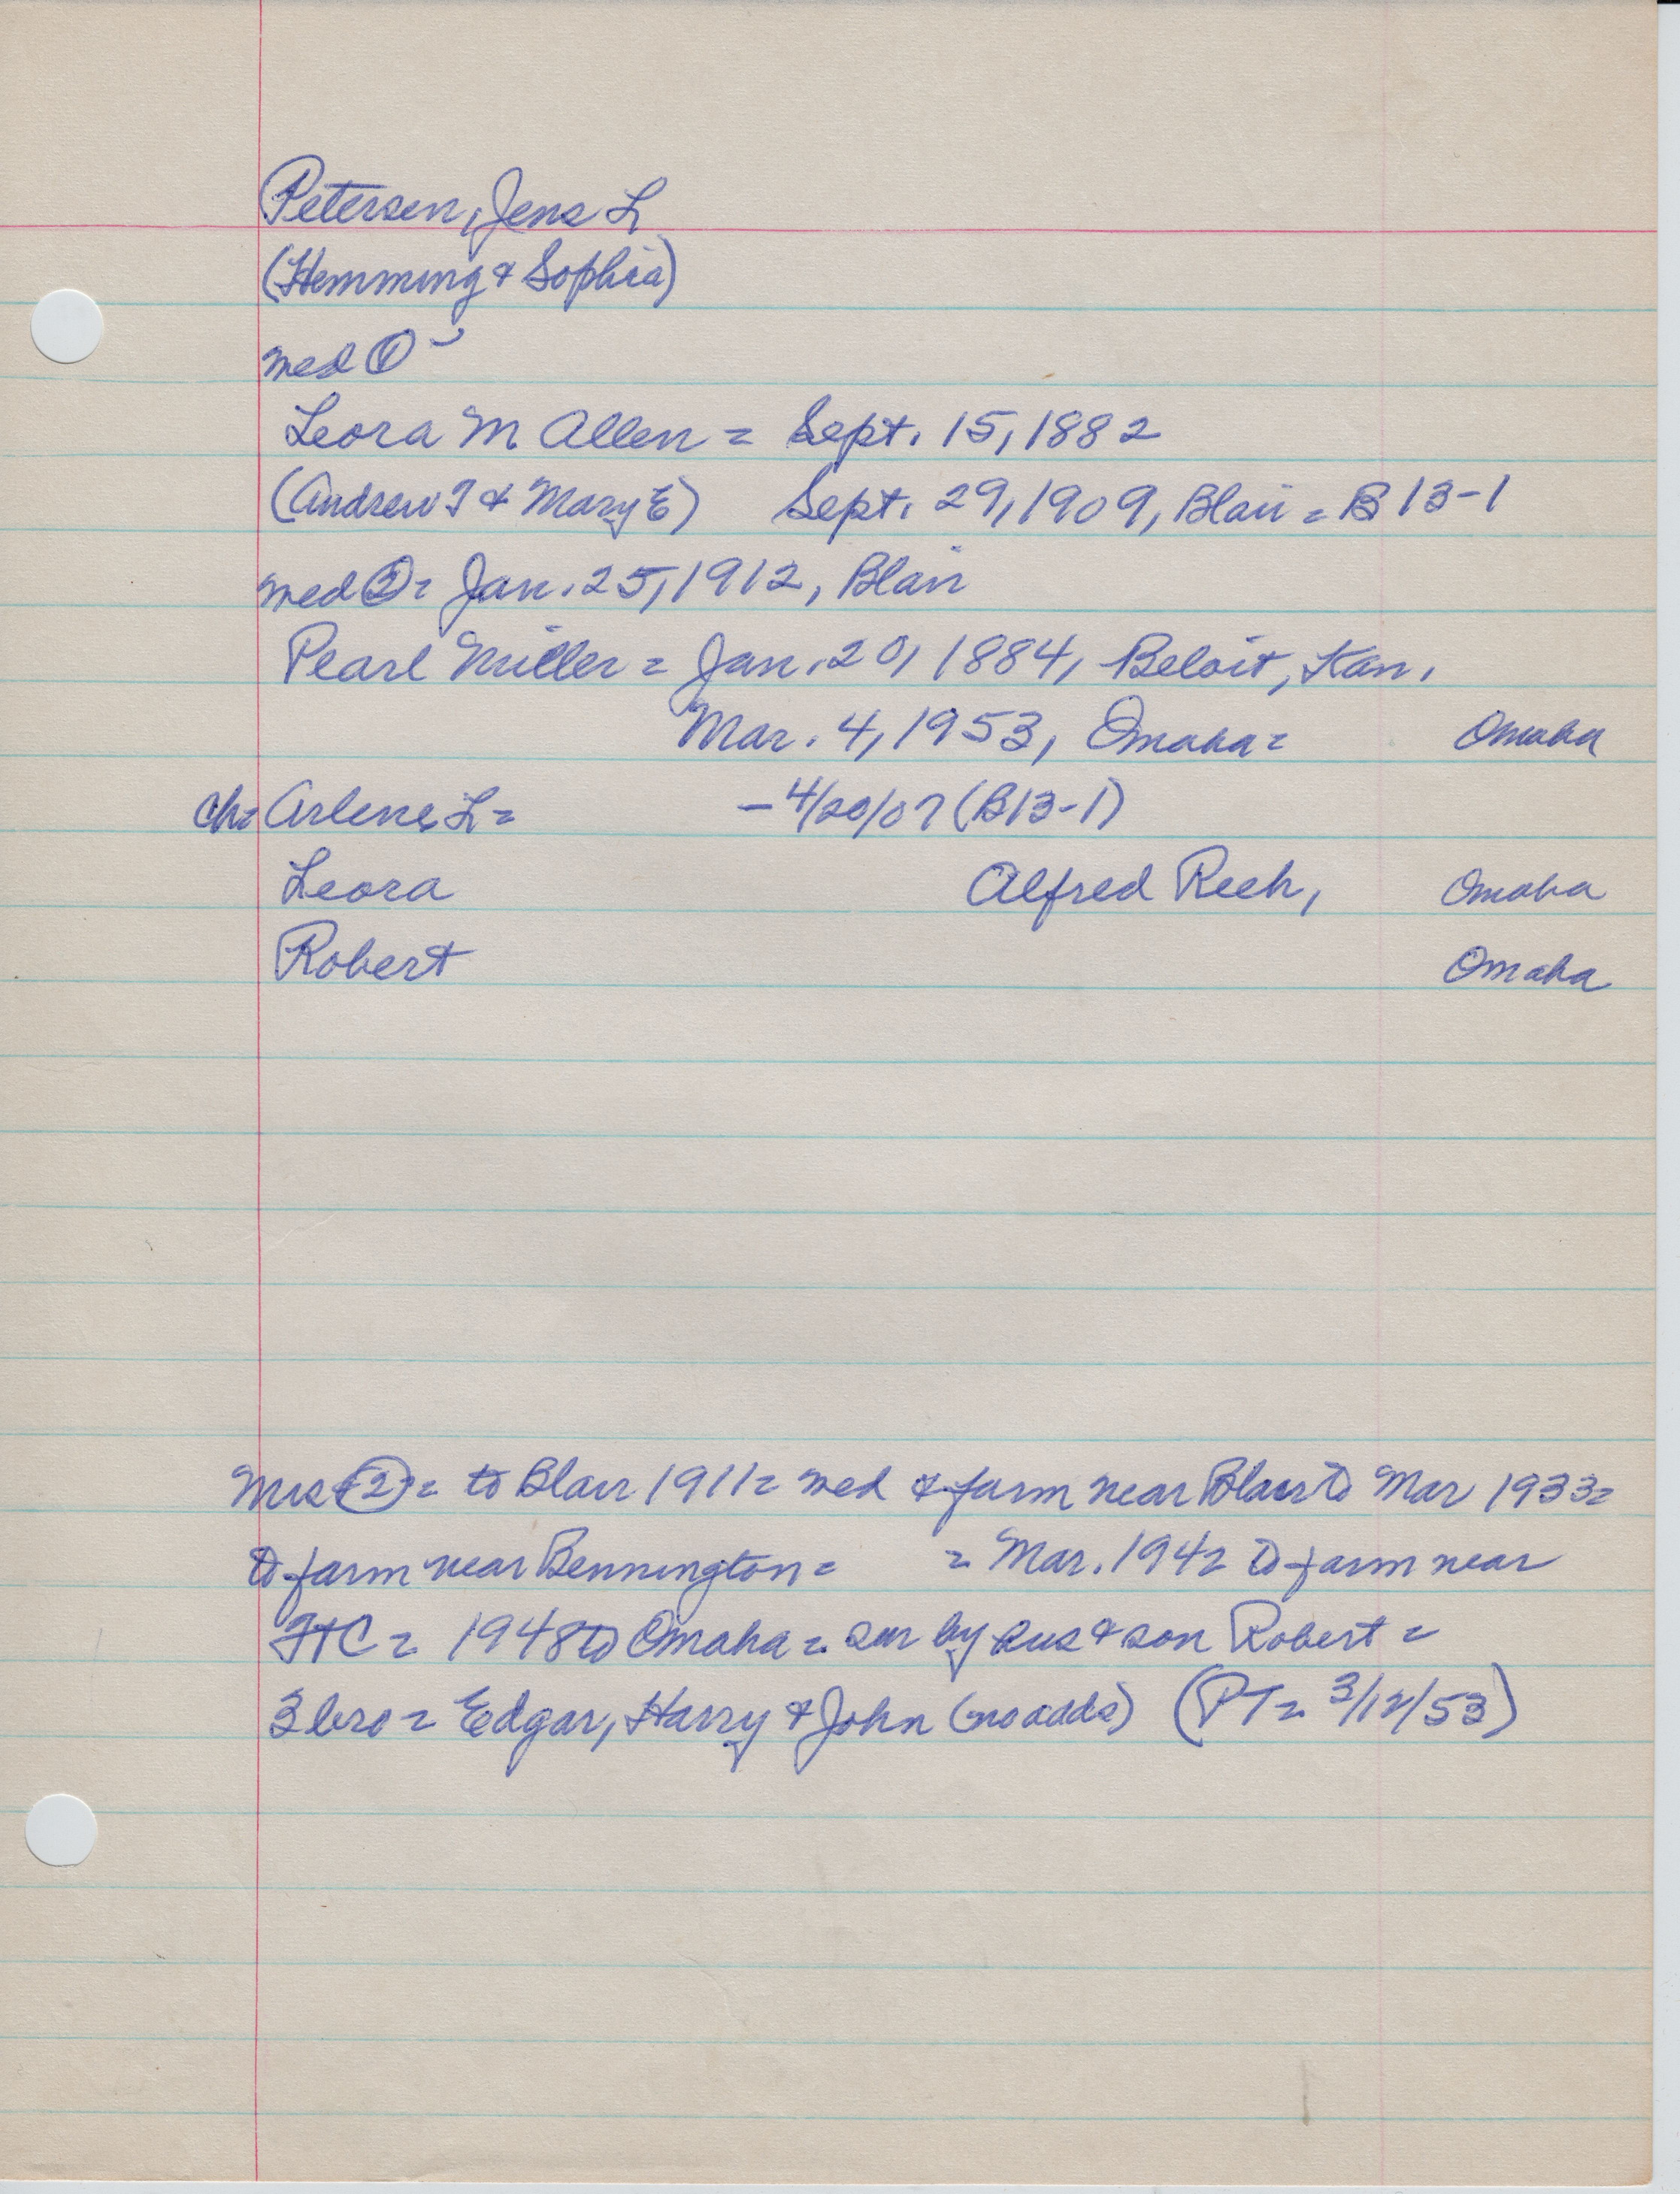 Petersen, Jens L
(Hemming & Sophia)
med ①
Leora M Allen = Sept. 15, 1882
(Andrew J & Mary E) Sept. 29, 1909, Blair = B 13-1
med ② = Jan. 25, 1912, Blair
Pearl Miller = Jan. 20, 1884, Beloit, Kan.
Mar. 4, 1953, Omaha = Omaha
ch = Arlene L = - 4/20/07 (B13-1)
Leora Alfred Reeh, Omaha
Robert Omaha
Mrs ② = to Blair 1911 = med & farm near Blair to Mar 1933 =
to farm near Bennington = = Mar. 1942 to farm near
FtC = 1948 to Omaha = sur by hus & son Robert =
3 bro = Edgar, Harry & John (no adds) (PT = 3/12/53)